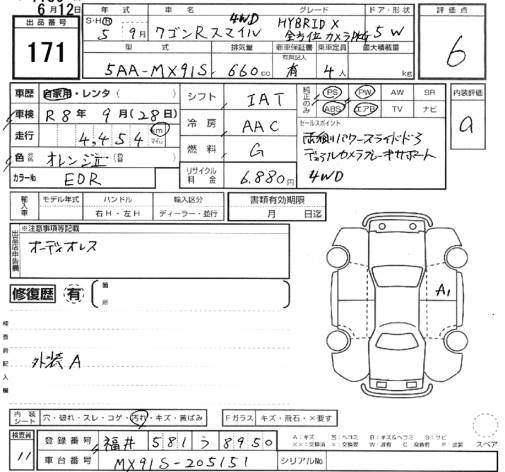 6月12日
出品番号
171
年式
S・H・R
5年 9月
車名
ワゴンRスマイル
4WD
グレード
HYBRID X
全方位カメラPKG
ドア・形状
5W
評価点
6
型式
5AA-MX91S
排気量
660cc
新車保証書
有
記録簿
乗車定員
4人
最大積載量
kg
車歴
自家用・レンタ( )
車検
R8年 9月(28日)
走行
4,454
km
マイル
色
オレンジ
カラーNo
EDR
シフト
IAT
冷房
AAC
燃料
G
リサイクル料金
6.880円
純正のみ
PS PW AW SR
ABS エアB TV ナビ
セールスポイント
両側パワースライドドア
デュアルカメラブレーキサポート
4WD
内装評価
a
輸入車
モデル年式
ハンドル
右H・左H
輸入区分
ディーラー・並行
書類有効期限
月 日迄
出品店申告欄
※注意事項等記載
オーディオレス
修復歴
有
箇所
検査員記入欄
外装A
A1
内装シート
穴・破れ・スレ・コゲ・汚れ・キズ・黄ばみ
Fガラス
キズ・飛石・×要す
検査員
11
登録番号
福井 581 う 8950
車台番号
MX91S-205151
シリアルNo
A:キズ
スペア